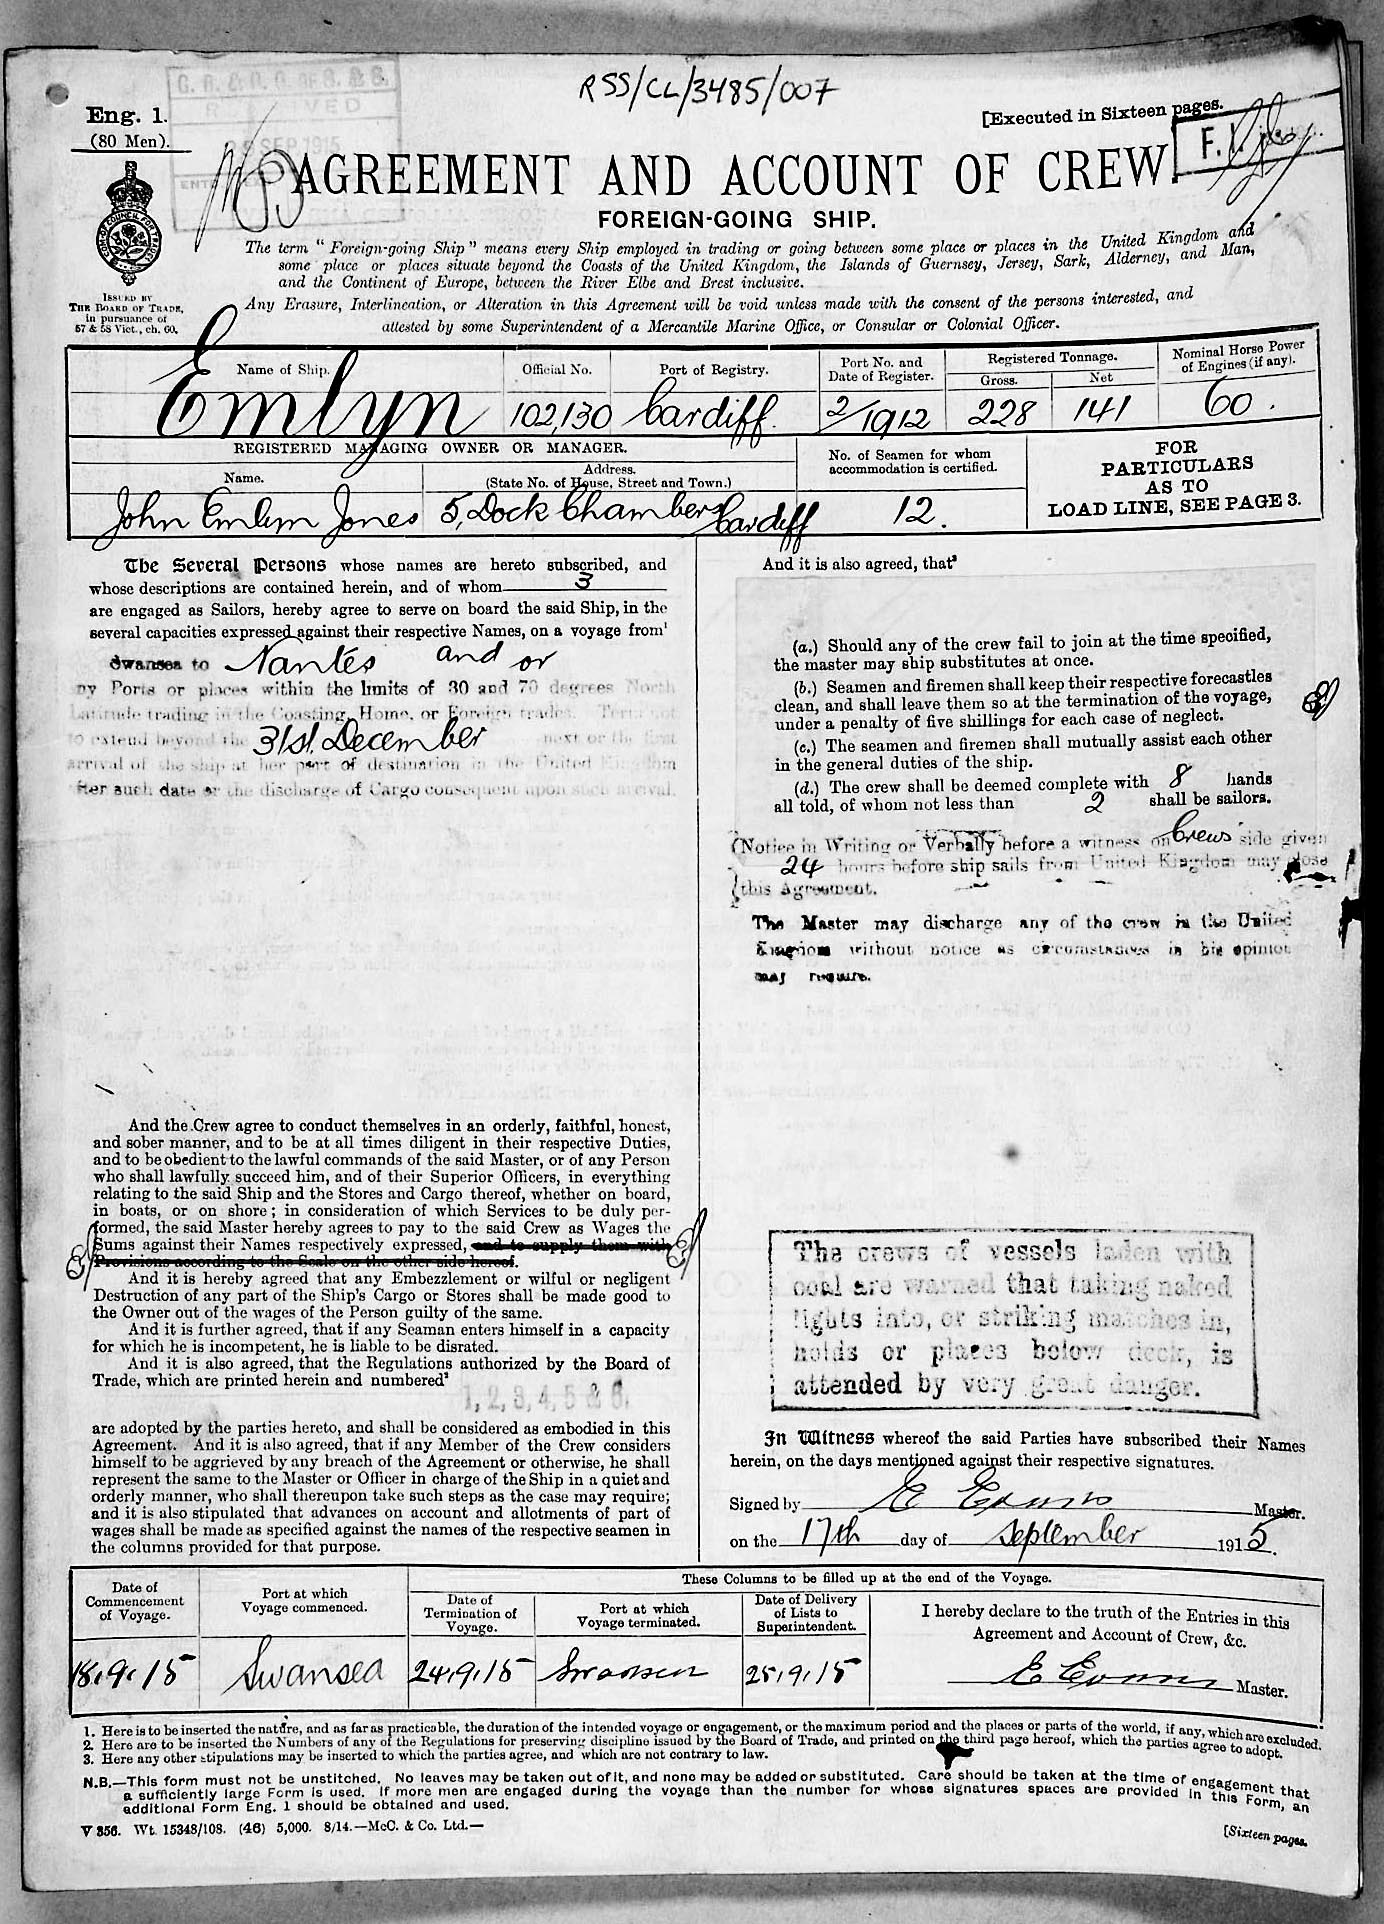 RSS/CL/3485/007
G. R. & R. G. OF S. & S.
RECEIVED
SEP 1915
Eng. 1.
(80 Men).
[Executed in Sixteen pages.
F. I.
AGREEMENT AND ACCOUNT OF CREW.
FOREIGN-GOING SHIP.
ISSUED BY
THE BOARD OF TRADE,
in pursuance of
57 & 58 Vict., ch. 60.
The term "Foreign-going Ship" means every Ship employed in trading or going between some place or places in the United Kingdom and
some place or places situate beyond the Coasts of the United Kingdom, the Islands of Guernsey, Jersey, Sark, Alderney, and Man,
and the Continent of Europe, between the River Elbe and Brest inclusive.
Any Erasure, Interlineation, or Alteration in this Agreement will be void unless made with the consent of the persons interested, and
attested by some Superintendent of a Mercantile Marine Office, or Consular or Colonial Officer.
Name of Ship. Official No. Port of Registry. Port No. and Date of Register. Registered Tonnage. Gross. Net Nominal Horse Power of Engines (if any).
Emlyn 102,130 Cardiff. 2/1912 228 141 60.
REGISTERED MANAGING OWNER OR MANAGER.
Name. Address. (State No. of House, Street and Town.) No. of Seamen for whom accommodation is certified.
John Emlyn Jones 5, Dock Chambers Cardiff 12.
FOR
PARTICULARS
AS TO
LOAD LINE, SEE PAGE 3.
The Several Persons whose names are hereto subscribed, and
whose descriptions are contained herein, and of whom 3
are engaged as Sailors, hereby agree to serve on board the said Ship, in the
several capacities expressed against their respective Names, on a voyage from¹
Swansea to Nantes and or
ny Ports or places within the limits of 30 and 70 degrees North
Latitude trading in the Coasting, Home, or Foreign trades. Term not
to extend beyond the 31st December next or the first
arrival of the ship at her port of destination in the United Kingdom
fter such date or the discharge of Cargo consequent upon such arrival.
And the Crew agree to conduct themselves in an orderly, faithful, honest,
and sober manner, and to be at all times diligent in their respective Duties,
and to be obedient to the lawful commands of the said Master, or of any Person
who shall lawfully succeed him, and of their Superior Officers, in everything
relating to the said Ship and the Stores and Cargo thereof, whether on board,
in boats, or on shore; in consideration of which Services to be duly per-
formed, the said Master hereby agrees to pay to the said Crew as Wages the
Sums against their Names respectively expressed, and to supply them with
Provisions according to the Scale on the other side hereof.
And it is hereby agreed that any Embezzlement or wilful or negligent
Destruction of any part of the Ship's Cargo or Stores shall be made good to
the Owner out of the wages of the Person guilty of the same.
And it is further agreed, that if any Seaman enters himself in a capacity
for which he is incompetent, he is liable to be disrated.
And it is also agreed, that the Regulations authorized by the Board of
Trade, which are printed herein and numbered²
1, 2, 3, 4, 5 & 6.
are adopted by the parties hereto, and shall be considered as embodied in this
Agreement. And it is also agreed, that if any Member of the Crew considers
himself to be aggrieved by any breach of the Agreement or otherwise, he shall
represent the same to the Master or Officer in charge of the Ship in a quiet and
orderly manner, who shall thereupon take such steps as the case may require;
and it is also stipulated that advances on account and allotments of part of
wages shall be made as specified against the names of the respective seamen in
the columns provided for that purpose.
And it is also agreed, that³
(a.) Should any of the crew fail to join at the time specified,
the master may ship substitutes at once.
(b.) Seamen and firemen shall keep their respective forecastles
clean, and shall leave them so at the termination of the voyage,
under a penalty of five shillings for each case of neglect.
(c.) The seamen and firemen shall mutually assist each other
in the general duties of the ship.
(d.) The crew shall be deemed complete with 8 hands
all told, of whom not less than 2 shall be sailors.
(Notice in Writing or Verbally before a witness on Crews side given
24 hours before ship sails from United Kingdom may close
this Agreement.
The Master may discharge any of the crew in the United
Kingdom without notice as circumstances in his opinion
may require.
The crews of vessels laden with
coal are warned that taking naked
lights into, or striking matches in,
holds or places below deck, is
attended by very great danger.
In Witness whereof the said Parties have subscribed their Names
herein, on the days mentioned against their respective signatures.
Signed by E Evans Master.
on the 17th day of September 1915.
These Columns to be filled up at the end of the Voyage.
Date of Commencement of Voyage. Port at which Voyage commenced. Date of Termination of Voyage. Port at which Voyage terminated. Date of Delivery of Lists to Superintendent. I hereby declare to the truth of the Entries in this Agreement and Account of Crew, &c.
18.9.15 Swansea 24.9.15 Swansea 25.9.15 E Evans Master.
1. Here is to be inserted the nature, and as far as practicable, the duration of the intended voyage or engagement, or the maximum period and the places or parts of the world, if any, which are excluded.
2. Here are to be inserted the Numbers of any of the Regulations for preserving discipline issued by the Board of Trade, and printed on the third page hereof, which the parties agree to adopt.
3. Here any other stipulations may be inserted to which the parties agree, and which are not contrary to law.
N.B.—This form must not be unstitched. No leaves may be taken out of it, and none may be added or substituted. Care should be taken at the time of engagement that
a sufficiently large Form is used. If more men are engaged during the voyage than the number for whose signatures spaces are provided in this Form, an
additional Form Eng. 1 should be obtained and used.
V 356. Wt. 15348/108. (46) 5,000. 8/14.—McC. & Co. Ltd.—
[Sixteen pages.